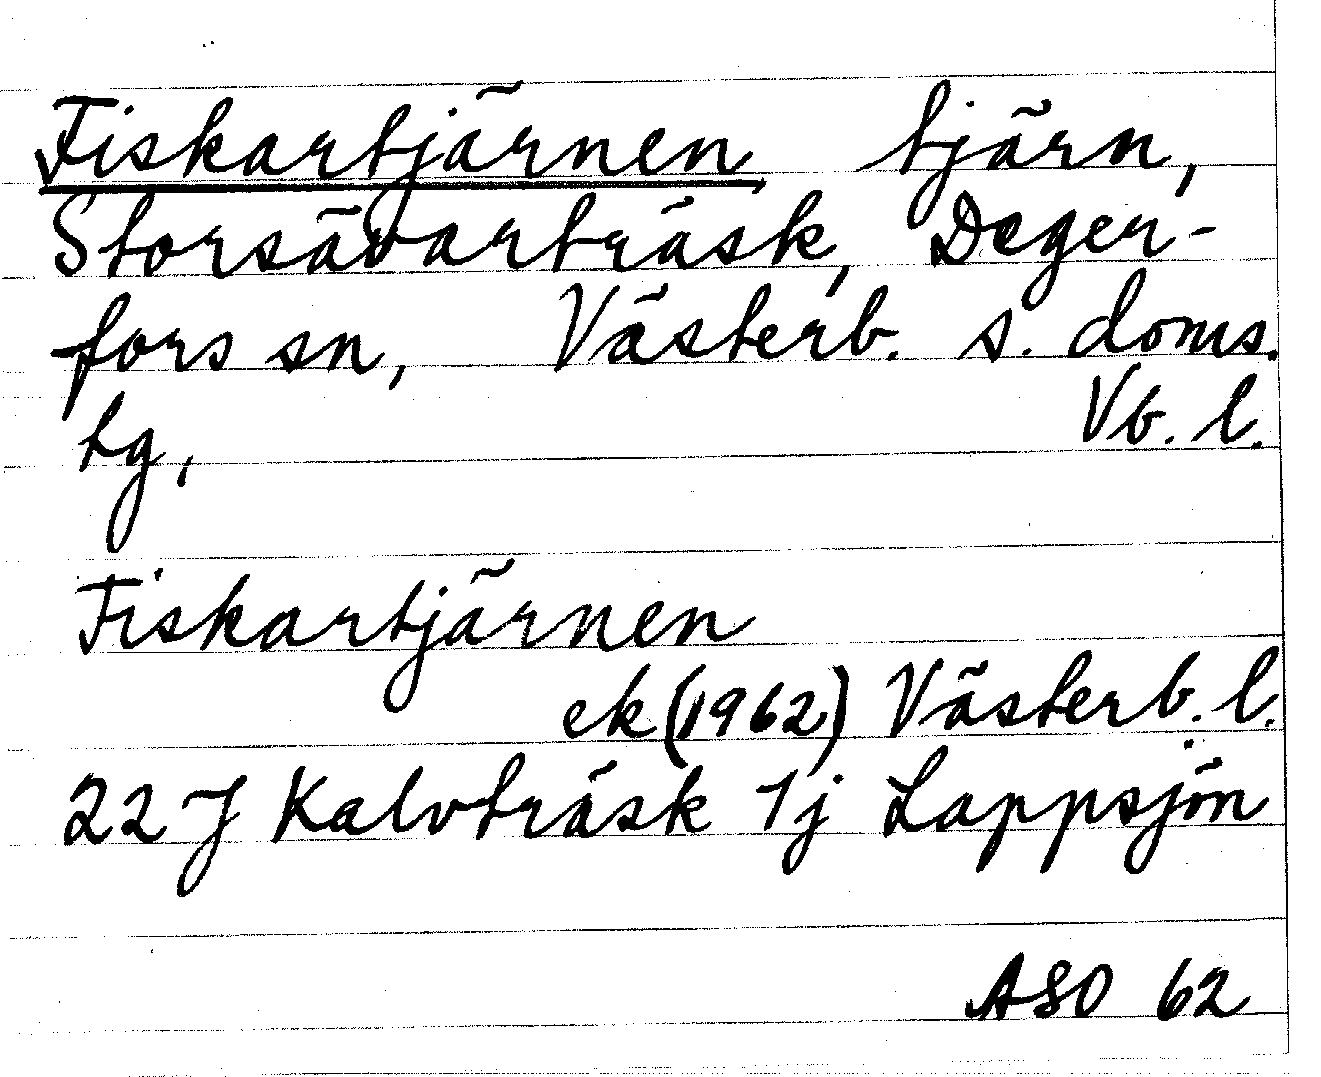 Fiskartjärnen, tjärn,
Storsävarträsk, Deger-
fors sn, Västerb. s. doms.
tg, Vb. l.
Fiskartjärnen
ek (1962) Västerb. l.
22 J Kalvträsk 1j Lappsjön
ASO 62